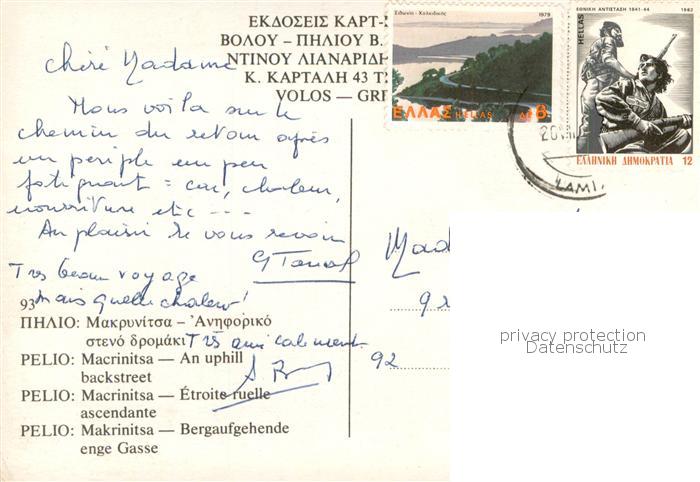 ΕΚΔΟΣΕΙΣ ΚΑΡΤ-
ΒΟΛΟΥ – ΠΗΛΙΟΥ Β.
ΝΤΙΝΟΥ ΛΙΑΝΑΡΙΔ
Κ. ΚΑΡΤΑΛΗ 43 Τ
VOLOS — GRE
Σιθωνία - Χαλκιδικής 1979
ΕΛΛΑΣ HELLAS ΔΡ 8
ΕΘΝΙΚΗ ΑΝΤΙΣΤΑΣΗ 1941-44 1982
HELLAS
ΕΛΛΗΝΙΚΗ ΔΗΜΟΚΡΑΤΙΑ 12
ΛΑΜΙ
Chère Madame
Nous voila sur le
chemin du retour après
un periple un peu
fatiguant = car, chaleur,
nourriture etc ---
Au plaisir de vous revoir
Tres beau voyage
mais quelle chaleur!
Très amicalement
Mad
92
92
93
ΠΗΛΙΟ: Μακρυνίτσα – Ἀνηφορικό
στενό δρομάκι
PELIO: Macrinitsa — An uphill
backstreet
PELIO: Macrinitsa — Étroite ruelle
ascendante
PELIO: Makrinitsa — Bergaufgehende
enge Gasse
privacy protection
Datenschutz